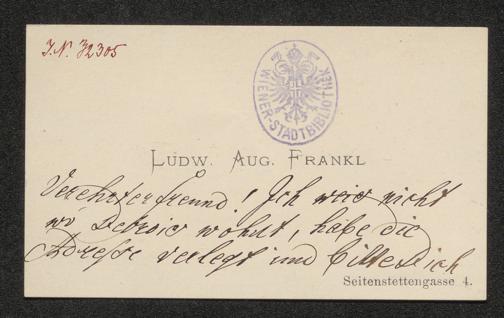 J.N. 72305
WIENER-STADTBIBLIOTHEK
LUDW. AUG. FRANKL
Verehrter Freund! Ich weis nicht
wo wohnt, habe die
Adresse verlegt und bitte Dich
Seitenstettengasse 4.